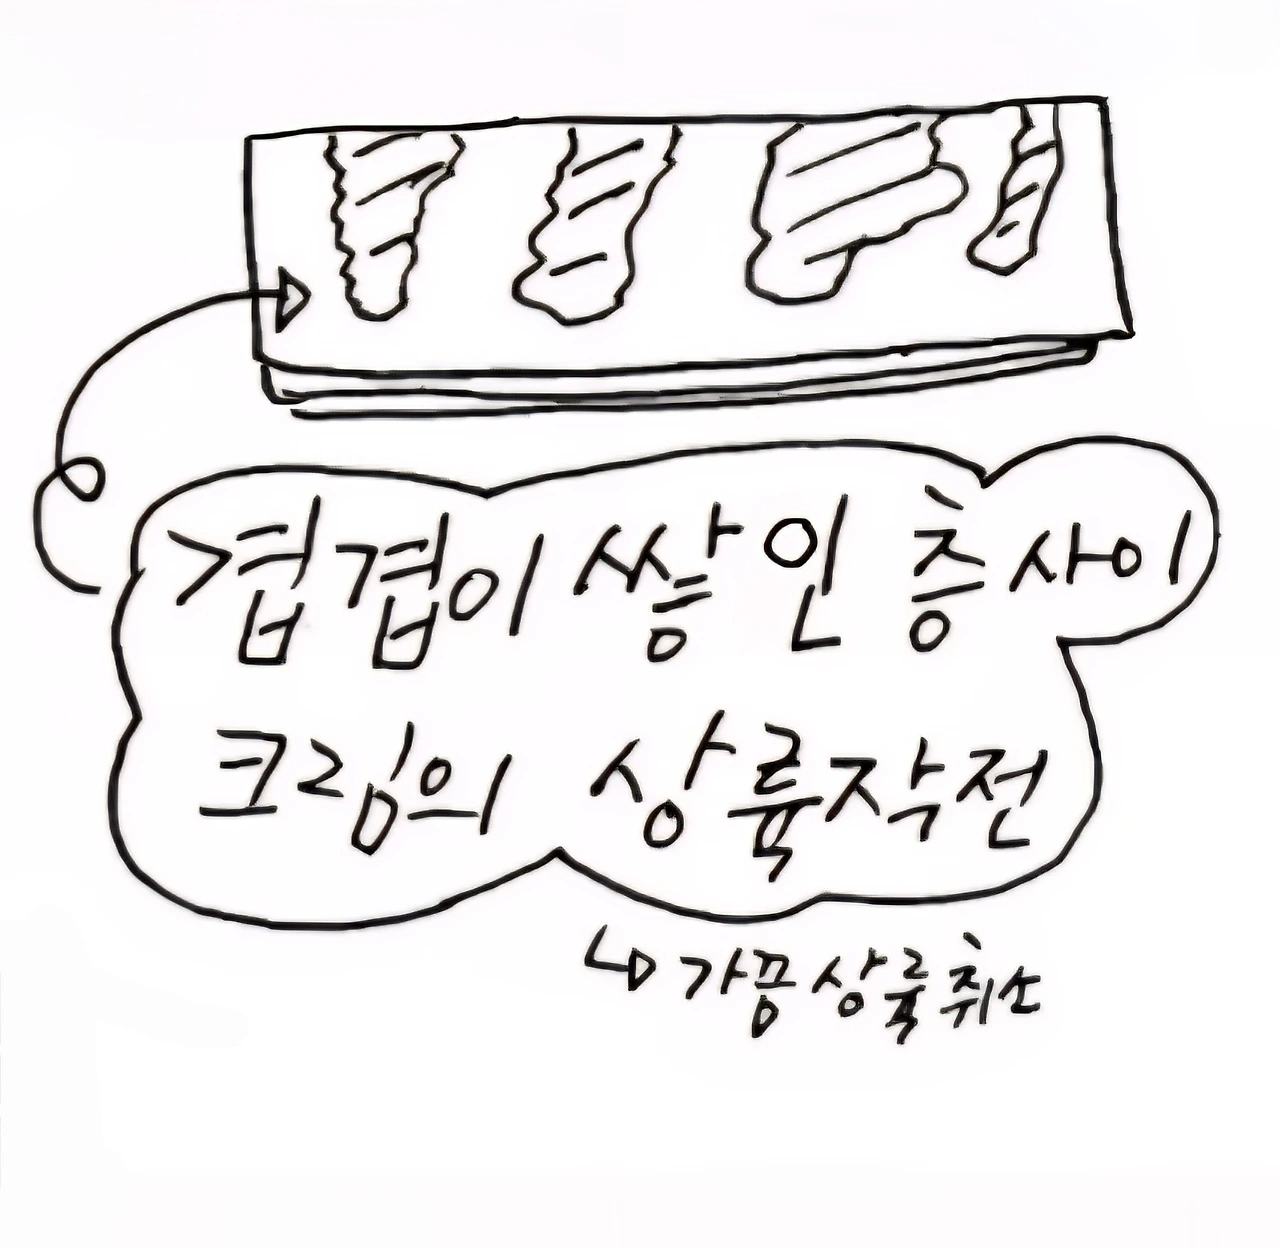 겹겹이 쌓인 층 사이
크림의 상륙작전
가끔 상륙 취소